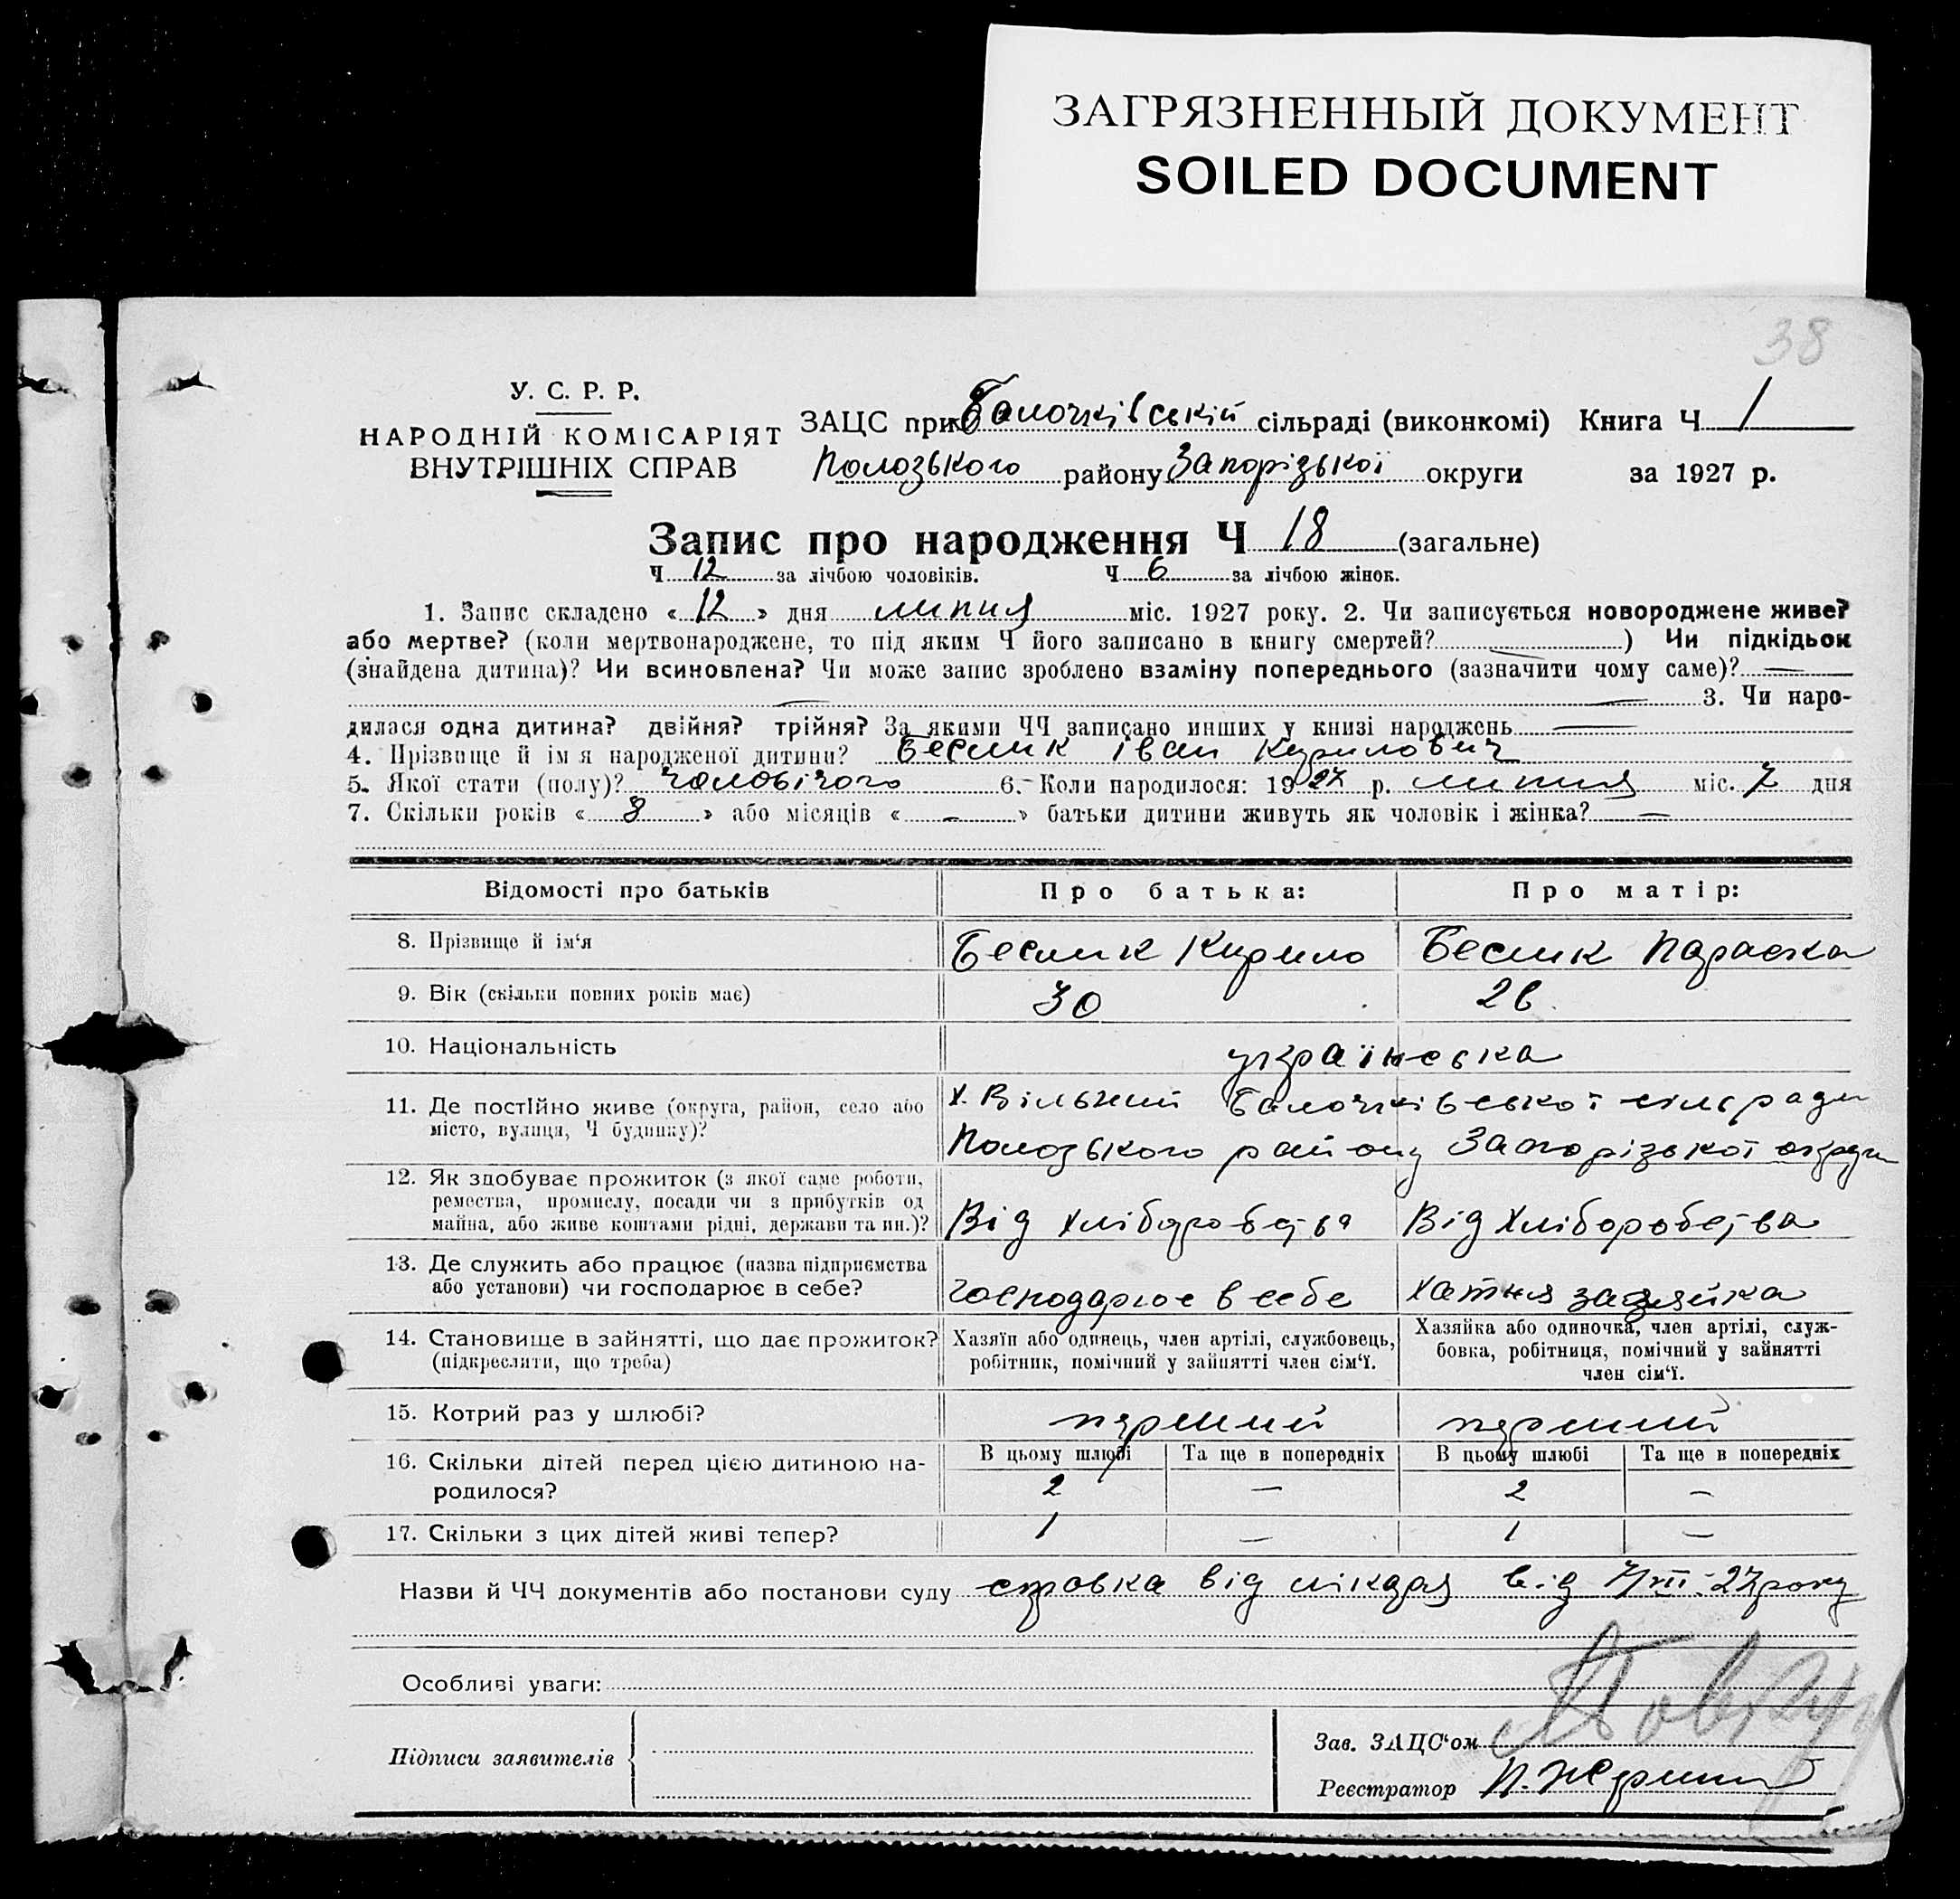 ЗАГРЯЗНЕННЫЙ ДОКУМЕНТ
SOILED DOCUMENT
38
У. С. Р. Р.
НАРОДНІЙ КОМІСАРІЯТ
ВНУТРІШНІХ СПРАВ
ЗАЦС при Балочківській сільраді (виконкомі) Книга Ч 1
Полозького району Запорізької округи за 1927 р.
Запис про народження Ч 18 (загальне)
Ч 12 за лічбою чоловіків. Ч 6 за лічбою жінок.
1. Запис складено « 12 » дня липня міс. 1927 року. 2. Чи записується новороджене живе?
або мертве? (коли мертвонароджене, то під яким Ч його записано в книгу смертей? — ) Чи підкідьок
(знайдена дитина)? Чи всиновлена? Чи може запис зроблено взаміну попереднього (зазначити чому саме)? —
— — 3. Чи наро-
дилася одна дитина? двійня? трійня? За якими ЧЧ записано инших у книзі народжень —
4. Прізвище й ім я народженої дитини? Беслик Іван Кирилович
5. Якої стати (полу)? чоловічого 6. Коли народилося: 1927 р. липня міс. 7 дня
7. Скільки років « 8 » або місяців « – » батьки дитини живуть як чоловік і жінка? —
Відомості про батьків Про батька: Про матір:
8. Прізвище й ім‘я Беслик Кирило Беслик Параска
9. Вік (скільки повних років має) 30 26
10. Національність українська
11. Де постІйно живе (округа, район, село або
місто, вулиця, Ч будинку)?
х. Вільний Балочківської сільради
Полозького району Запорізької округи
12. Як здобуває прожиток (з якої саме роботи,
ремества, промислу, посади чи з прибутків од
майна, або живе коштами рідні, держави та ин.)?
Від хліборобства Від хліборобства
13. Де служить або працює (назва підприємства
або установи) чи господарює в себе?
господарює в себе хатня хазяйка
14. Становище в зайнятті, що дає прожиток?
(підкреслити, що треба)
Хазяїн або одинець, член артілі, службовець,
робітник, помічний у зайнятті член сім‘ї.
Хазяйка або одиночка, член артілі, служ-
бовка, робітниця, помічний у зайнятті
член сім‘ї.
15. Котрий раз у шлюбі? перший перший
16. Скільки дітей перед цією дитиною на-
родилося?
В цьому шлюбі Та ще в попередніх В цьому шлюбі Та ще в попередніх
2 — 2 —
17. Скільки з цих дітей живі тепер? 1 — 1 —
Назви й ЧЧ документів або постанови суду справка від лікаря від 7/VII-27 року
Особливі уваги:
Підписи заявителів
Зав. ЗАЦС‘ом
Реєстратор П.